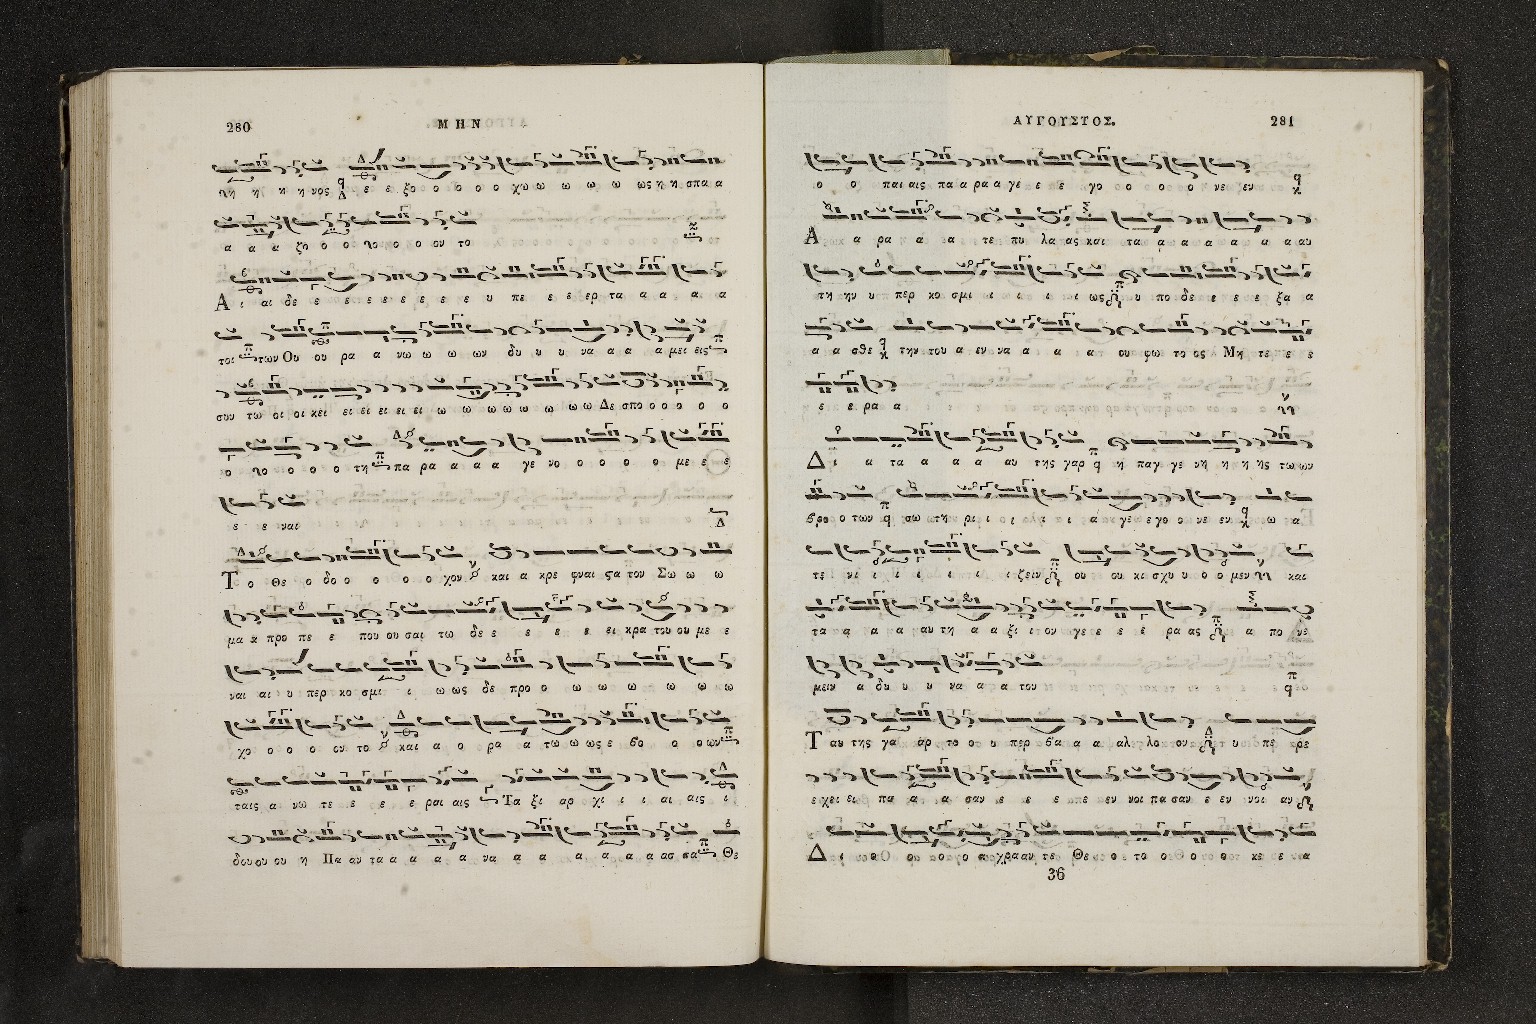 280
ΜΗΝ
λη η η η νος ε ε ξο ο ο ο ο ο χω ω ω ω ω ως η η σπα α
α α α ζο ο ο λο ο ο ο ου το
Α ι αι δε ε ε ε ε ε ε ε ε υ πε ε ε ερ τα α α α α
τοι των Ου ου ρα α νω ω ω ων δυ υ υ να α α α μει εις
συν τω οι οι κει ει ει ει ει ει ω ω ω ω ω ω ω ω Δε σπο ο ο ο ο ο
ο λο ο ο ο τη πα ρα α α α γε νο ο ο ο ο με ε ε
ε ε ναι
Τ ο Θε ο δο ο ο ο ο χον και α κρε φναι ϛα τον Σω ω ω
μα α προ πε ε που ου σαι τω δε ε ε ε ε ε ει κρα του ου με ε
ναι αι υ περ κο σμι ι ω ως δε προ ο ω ω ω ω ω ω
χο ο ο ο ου το και α ο ρα α τω ω ως ε βο ο ο ων
ταις α νω τε ε ε ε ε ραι αις Τα ξι αρ χι ι ι αι αις ι
δου ου ου η Πα αν τα α α α α να α α α α α ασ σα Θε
ΑΥΓΟΥΣΤΟΣ.
281
ο ο παι αις πα α ρα α γε ε ε γο ο ο ο ο νε εν
Α α ρα α α τε πυ λα ας και τα α α α α α α αυ
τη ην υ περ κο σμι ι ι ι ι ως υ πο δε ε ε ε ξα α
α α σθε την του α εν να α α α ου φω το ος Μη τε ε ε
ε ε ρα α
Δ ι α τα α α α αυ της γαρ η παγ γε νη η η ης τω ων
βρο ο των σω τη ρι ι ι ι ι ι α γε ε γο ο νε εν ω α
τε νι ι ι ι ι ι ι ζειν ου ου κι σχυ υ ο ο μεν και
τα α α α αυ τη α α ξι ι ον γε ε ε ε ρα ας α πο νε
μειν α δυ υ υ να α α τον
Τ αυ της γα αρ το ο υ περ βα α α αλ λο τον υ υ πε ρε
ε χει ει πα α α σαν ε ε ε πε εν νοι πα σαν ε εν νοι αν
Δ ι ο Ο ο ο ο ο χρα αν τε Θε ο ο το ο ο ο κε ε α
36